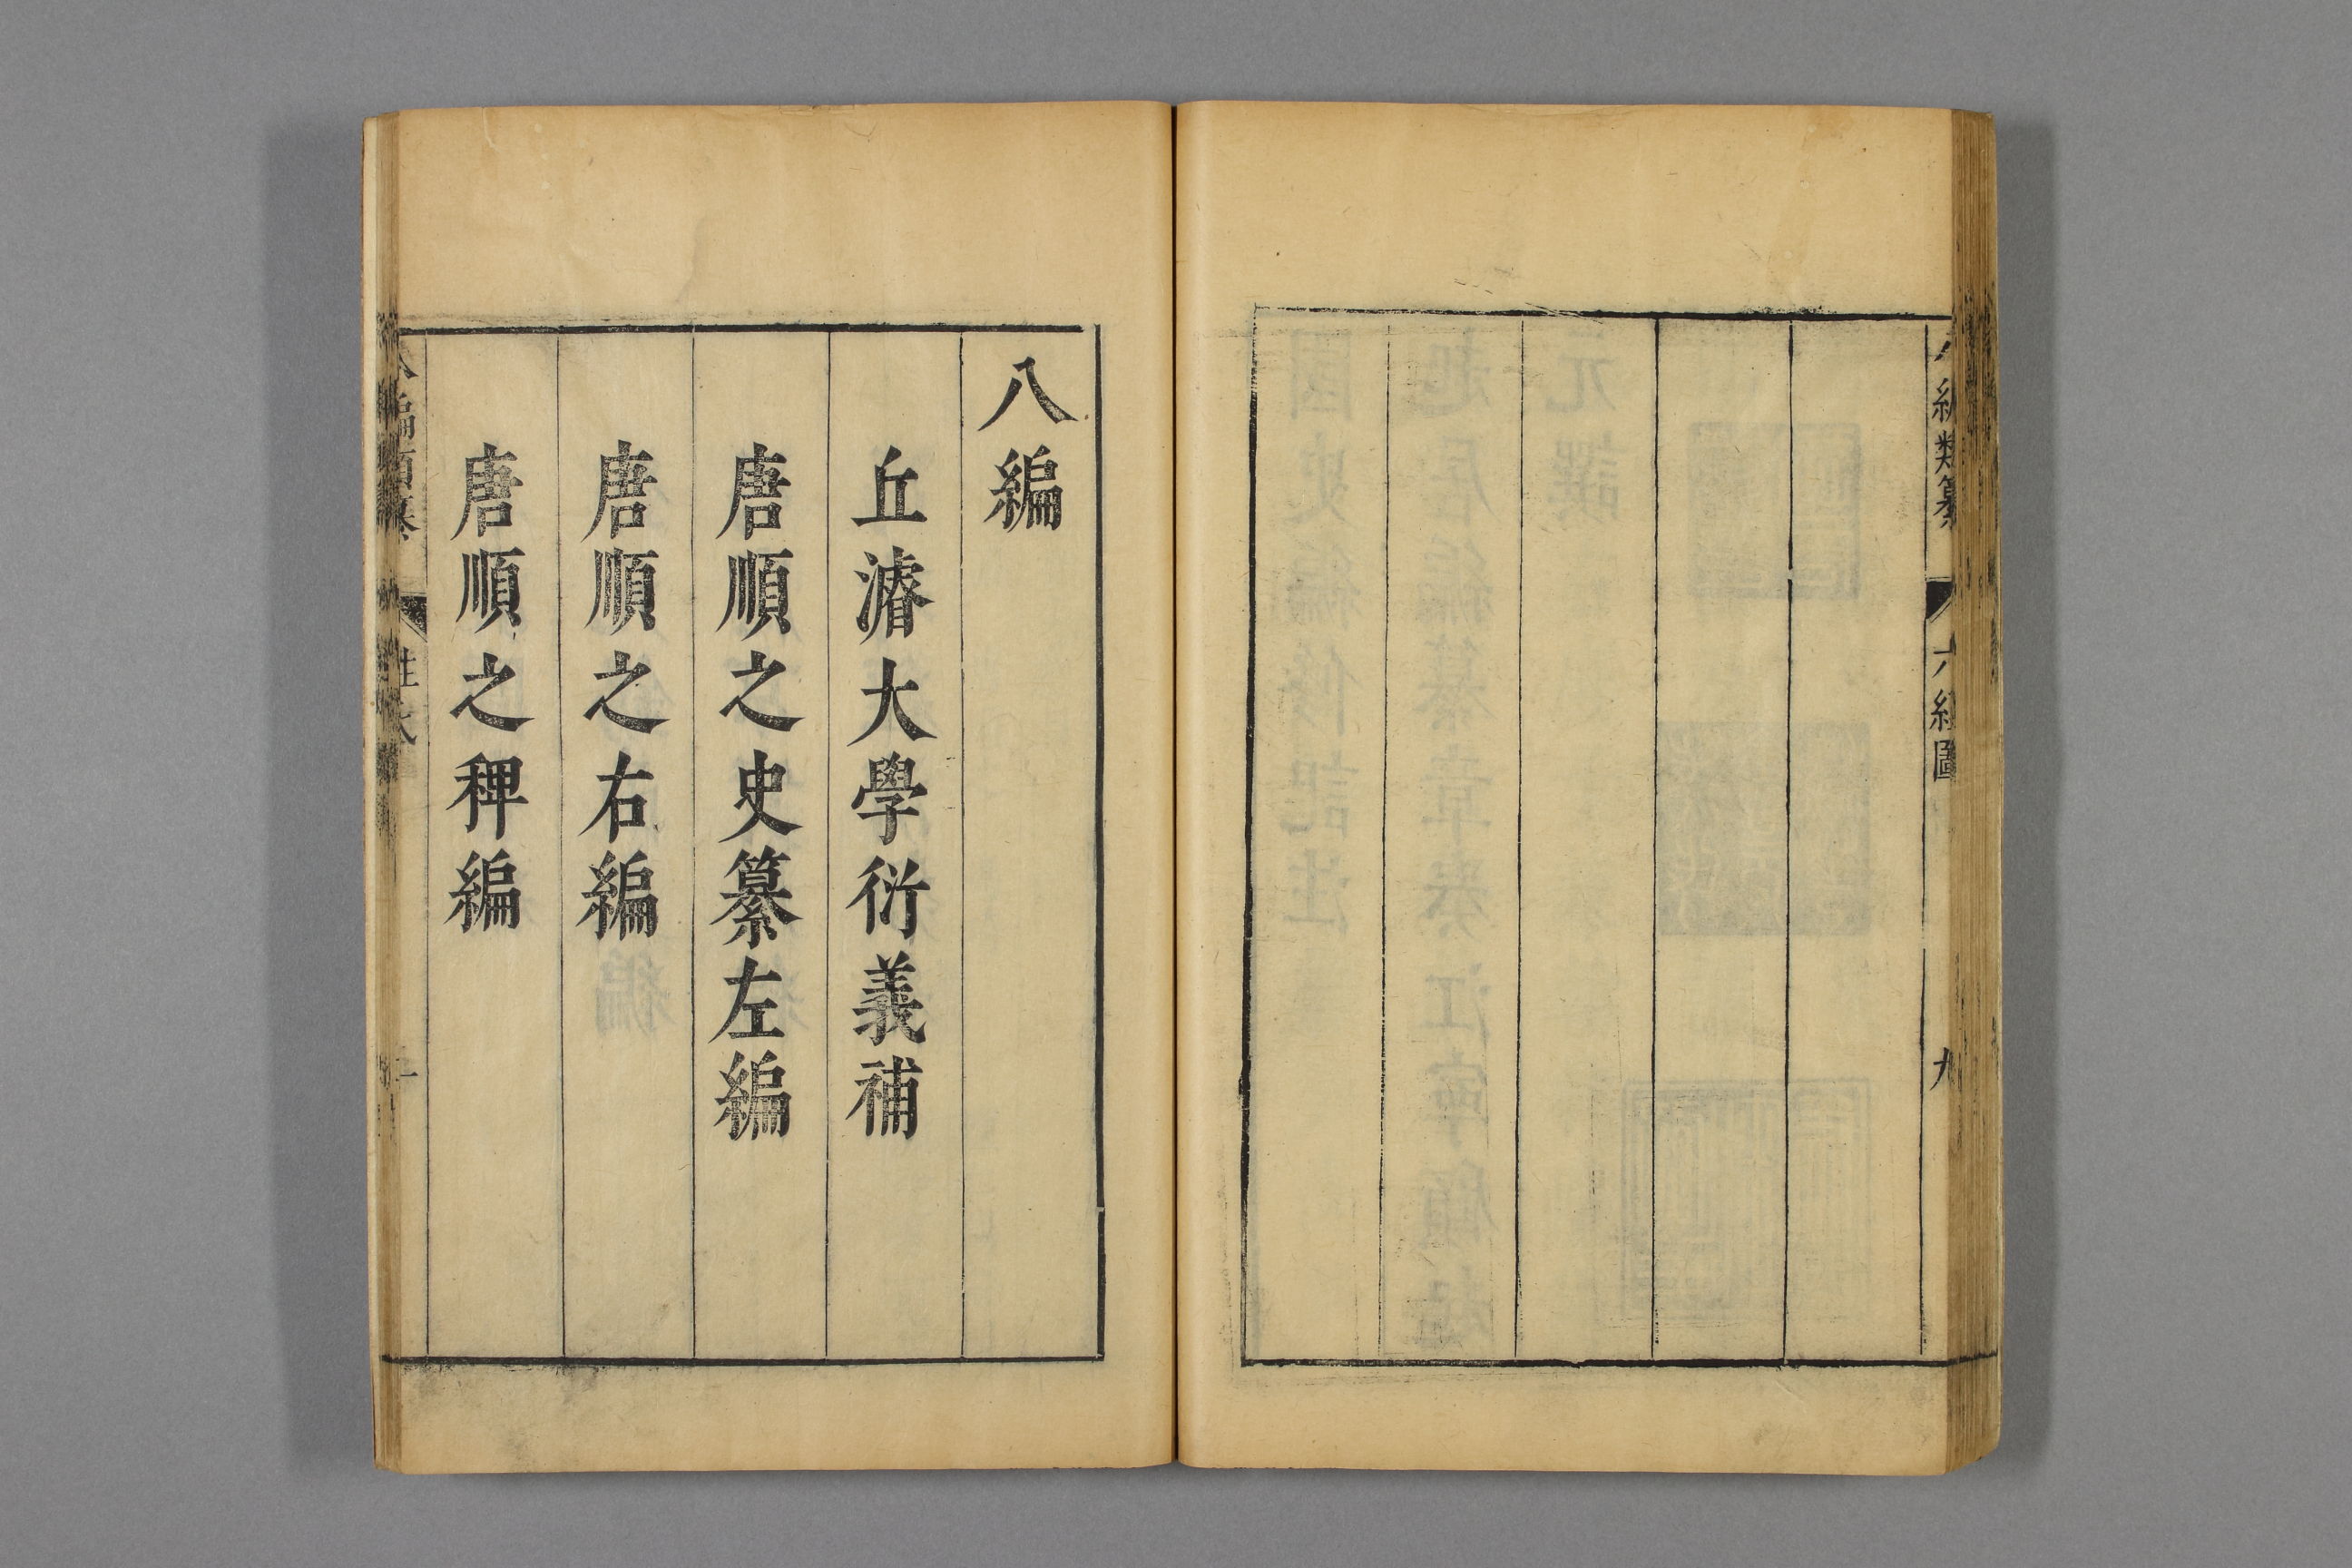 八編類纂
六經圖
九
八編
丘濬大學衍義補
唐順之史纂左編
唐順之右編
唐順之稗編
八編類纂
姓氏